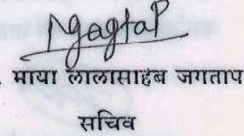 Magtap
माया लालासाहेब जगताप
सचिव